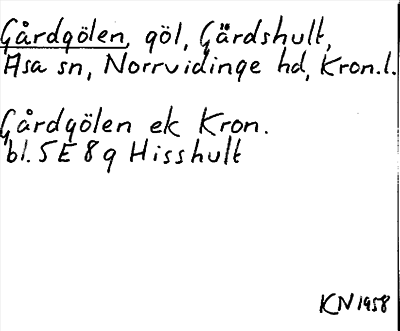 Gårdgölen, göl, Gårdshult,
Asa sn, Norrvidinge hd, Kron.l.
Gårdgölen ek Kron.
bl. 5E8g Hisshult
KN 1958